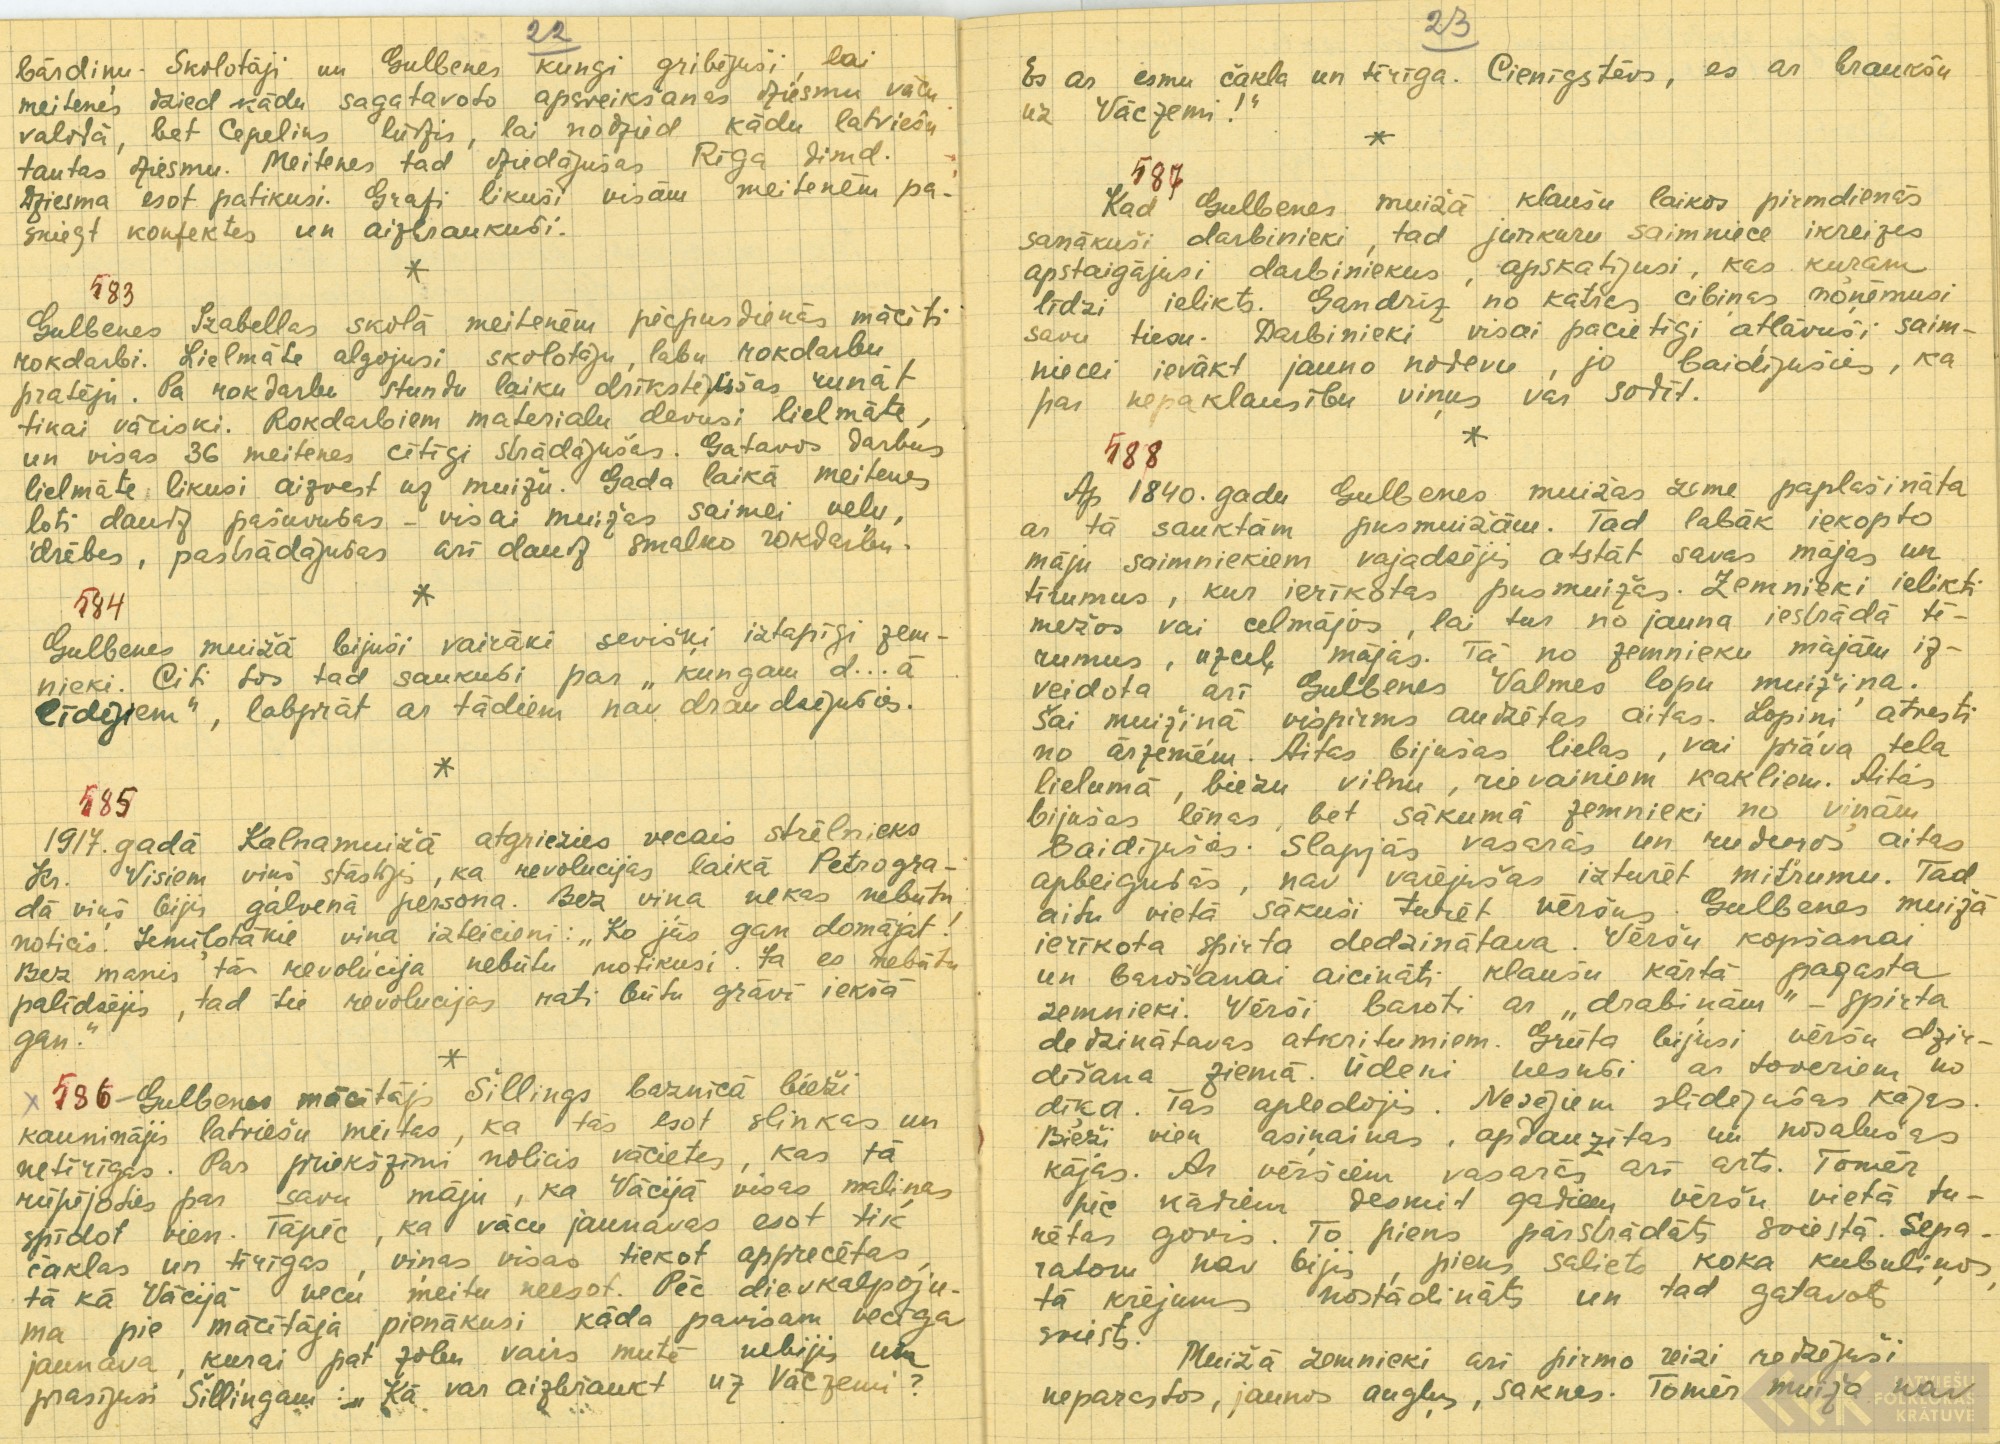 22
bārdinu. Skolotāji un Gulbenes kungi gribējuši, lai
meitenes dzied kādu sagatavoto apsveikšanas dziesmu vācu
valodā, bet Cepelins lūdzis, lai nodzied kādu latviešu
tautas dziesmu. Meitenes tad dziedājušas Rīga dimd.
Dziesma esot patikusi. Grafi likuši visām meitenēm pa-
sniegt konfektes un aizbraukuši.
*
583
Gulbenes Izabellas skolā meitenēm pēcpusdienās mācīti
rokdarbi. Lielmāte algojusi skolotāju, labu rokdarbu
pratēju. Pa rokdarbu stundu laiku drīkstējušas runāt
tikai vāciski. Rokdarbiem materialu devusi lielmāte,
un visas 36 meitenes cītīgi strādājušas. Gatavos darbus
lielmāte likusi aizvest uz muižu. Gada laikā meitenes
ļoti daudz pašuvušas – visai muižas saimei veļu,
drēbes, pastrādājušas arī daudz smalko rokdarbu.
*
584
Gulbenes muižā bijuši vairāki sevišķi iztapīgi zem-
nieki. Citi tos tad saukuši par „kungam d...ā
līdējiem", labprāt ar tādiem nav draudzējušies.
*
585
1917. gadā Kalnamuižā atgriezies vecais strēlnieks
Kr. Visiem viņš stāstījis, ka revolucijas laikā Petrogra-
dā viņš bijis galvenā persona. Bez viņa nekas nebūtu
noticis. Iemīļotākie viņa izteicieni: „Ko jūs gan domājat!
Bez manis tā revolūcija nebūtu notikusi. Ja es nebūtu
palīdzējis, tad tie revolucijas rati būtu grāvī iekšā
gan."
*
x 586 – Gulbenes mācītājs Šillings baznīcā bieži
kauninājis latviešu meitas, ka tās esot slinkas un
netīrīgas. Par priekšzīmi nolicis vācietes, kas tā
rūpējoties par savu māju, ka Vācijā visas maliņas
spīdot vien. Tāpēc, ka vācu jaunavas esot tik
čaklas un tīrīgas, viņas visas tiekot apprecētas,
tā kā Vācijā vecu meitu neesot. Pēc dievkalpoju-
ma pie mācītāja pienākusi kāda pavisam vecīga
jaunava, kurai pat zobu vairs mutē nebijis un
prasījusi Šillingam: „Kā var aizbraukt uz Vāczemi?
23
Es ar esmu čakla un tīrīga. Cienīgstēvs, es ar braukšu
uz Vāczemi!"
*
587
Kad Gulbenes muižā klaušu laikos pirmdienās
sanākuši darbinieki, tad junkuru saimniece ikreizes
apstaigājusi darbiniekus, apskatījusi, kas kuram
līdzi ielikts. Gandrīz no katras cibiņas noņēmusi
savu tiesu. Darbinieki visai pacietīgi atļāvuši saim-
niecei ievākt jauno nodevu, jo baidījušies, ka
par nepaklausību viņus var sodīt.
*
588
Ap 1840. gadu Gulbenes muižas zeme paplašināta
ar tā sauktām pusmuižām. Tad labāk iekopto
māju saimniekiem vajadzējis atstāt savas mājas un
tīrumus, kur ierīkotas pusmuižas. Zemnieki ielikti
mežos vai celmājos, lai tur no jauna iestrādā tī-
rumus, uzceļ mājas. Tā no zemnieku mājām iz-
veidota arī Gulbenes Valmes lopu muižiņa.
Šai muižiņā vispirms audzētas aitas. Lopiņi atvesti
no ārzemēm. Aitas bijušas lielas, vai prāva teļa
lielumā, biezu vilnu, rievainiem kakliem. Aitas
bijušas lēnas, bet sākumā zemnieki no viņām
baidījušies. Slapjās vasarās un rudeņos aitas
apbeigušās, nav varējušas izturēt mitrumu. Tad
aitu vietā sākuši turēt vēršus. Gulbenes muižā
ierīkota spirta dedzinātava. Vēršu kopšanai
un barošanai aicināti klaušu kārtā pagasta
zemnieki. Vērši baroti ar „drabiņām" – spirta
dedzinātavas atkritumiem. Grūta bijusi vēršu dzir-
dīšana ziemā. Ūdeni nesuši ar toveriem no
dīķa. Tas apledojis. Nesējiem slīdējušas kājas.
Bieži vien asiņainas, apdauzītas un nosalušas
kājas. Ar vēršiem vasarās arī arts. Tomēr
pēc kādiem desmit gadiem vēršu vietā tu-
rētas govis. To piens pārstrādāts sviestā. Sepa-
ratoru nav bijis, piens saliets koka kubuliņos,
tā krējums nostādināts un tad gatavots
sviests.
Muižā zemnieki arī pirmo reizi redzējuši
neparastos, jaunos augļus, saknes. Tomēr muiža nav
LATVIEŠU
FOLKLORAS
KRĀTUVE